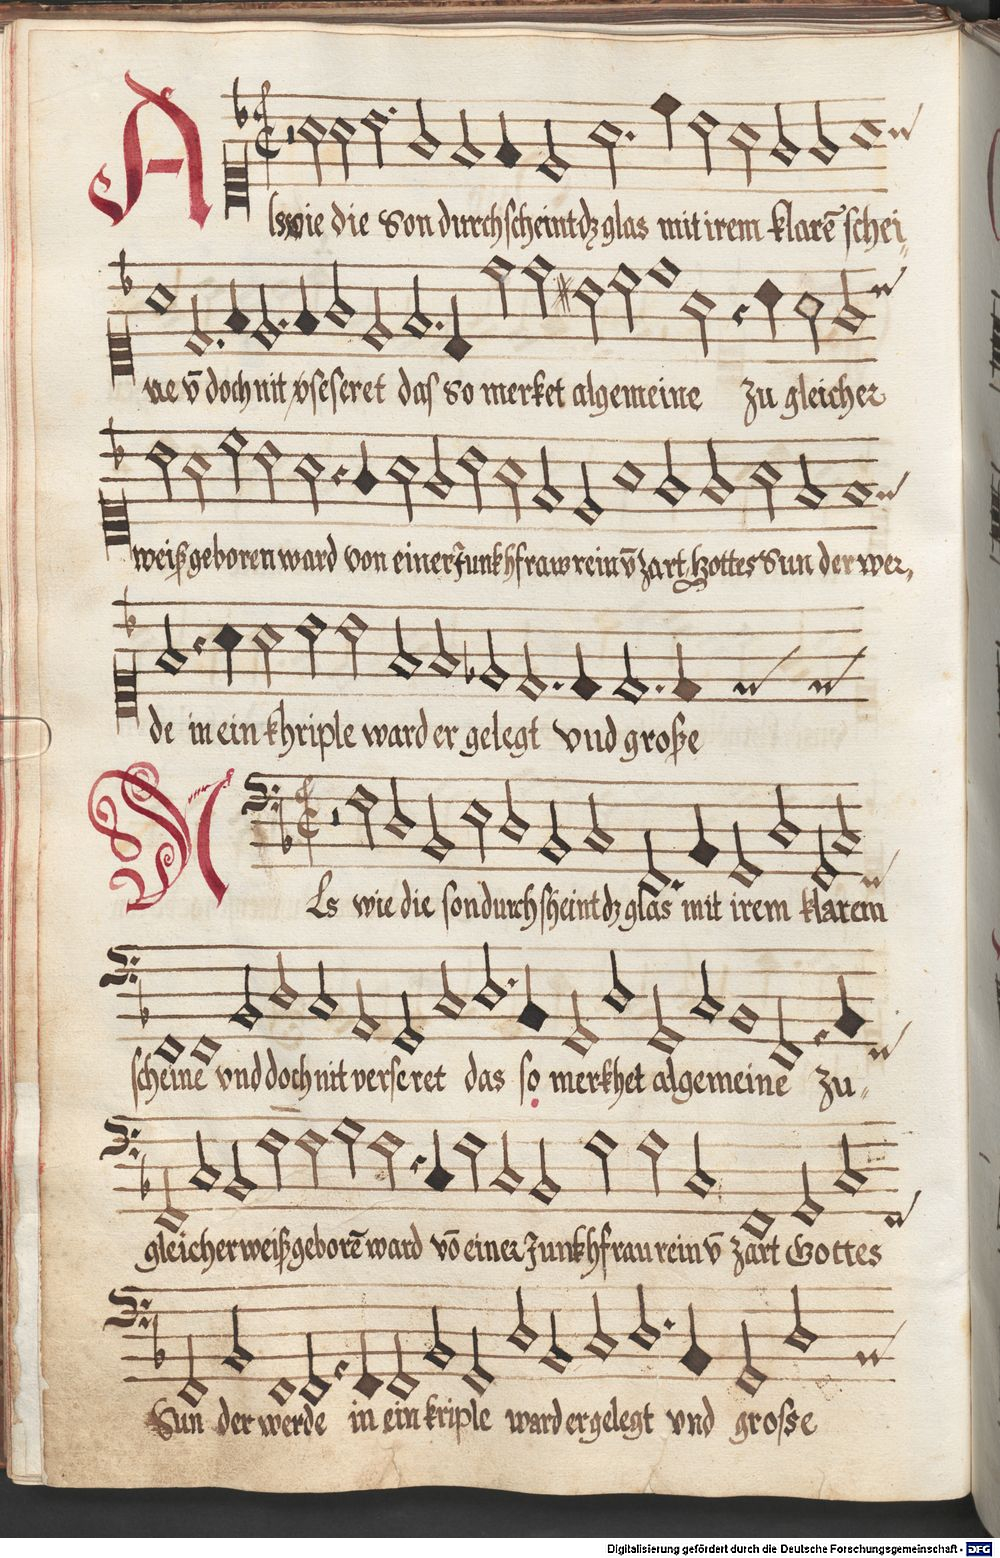 Alswie die Son durchscheint dz glas mit irem klarē schei,
ne vn̄ doch nit vseseret das so merket algemeine zu gleicher
weiß geboren ward von einer Junkhfraw rein vn̄ zart Gottes Sun der wer,
de in ein khriple ward er gelegt vnd große
Als wie die son durchscheint dz glas mit irem klarem
scheine vnd doch nit verseret das so merkhet algemeine zu,
gleicher weiß geborē ward vō einer Junkhfrau rein vn̄ zart Gottes
Sun der werde in ein kriple ward er gelegt vnd grosse
Digitalisierung gefördert durch die Deutsche Forschungsgemeinschaft - DFG